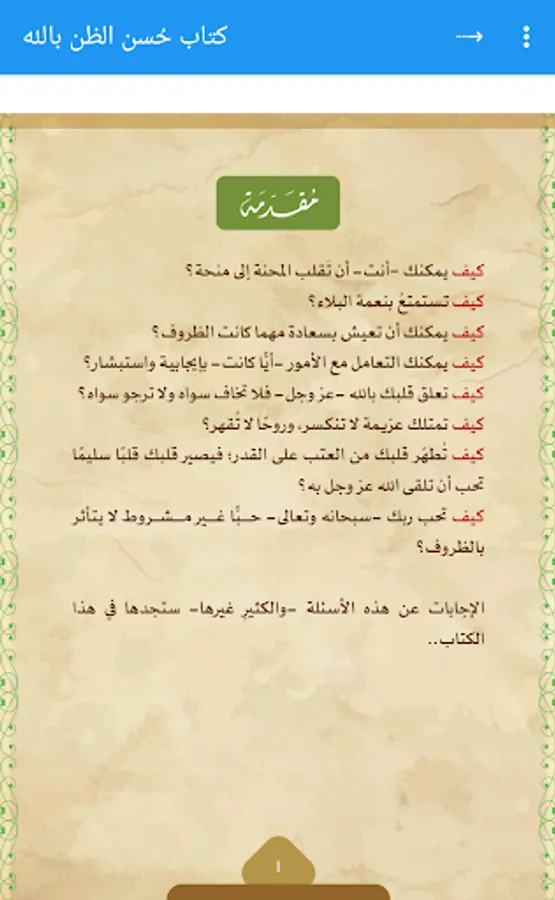 كتاب حُسن الظن بالله
مُقَدّمَة
كيف يمكنك -أنت- أن تَقلب المحنة إلى منحة؟
كيف تستمتعُ بنعمة البلاء؟
كيف يمكنك أن تعيش بسعادة مهما كانت الظروف؟
كيف يمكنك التعامل مع الأمور -أيًّا كانت- بإيجابية واستبشار؟
كيف تعلق قلبك بالله -عز وجل- فلا تخاف سواه ولا ترجو سواه؟
كيف تمتلك عزيمة لا تنكسر، وروحًا لا تُقهر؟
كيف تُطهّر قلبك من العتب على القدر؛ فيصير قلبك قلبًا سليمًا
تحب أن تلقى الله عز وجل به؟
كيف تحب ربك -سبحانه وتعالى- حــبًّا غــير مــشــروط لا يتأثر
بالظروف؟
الإجابات عن هذه الأسئلة -والكثيرِ غيرها- ستجدها في هذا
الكتاب..
١